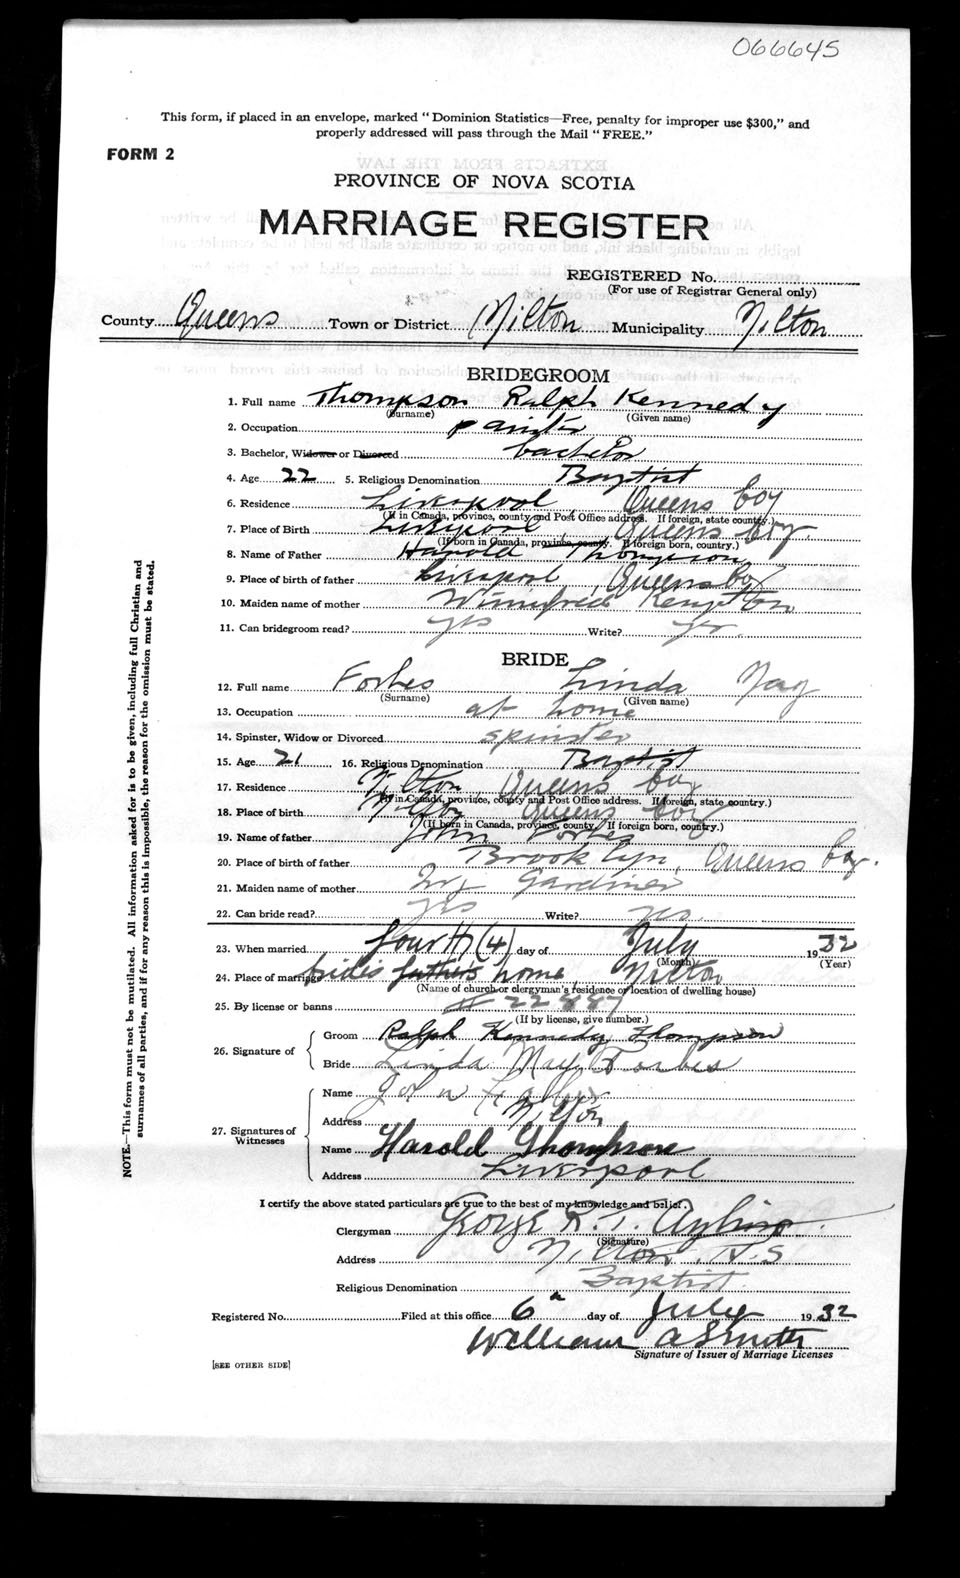 066645
This form, if placed in an envelope, marked "Dominion Statistics—Free, penalty for improper use $300," and
properly addressed will pass through the Mail "FREE."
FORM 2
PROVINCE OF NOVA SCOTIA
MARRIAGE REGISTER
REGISTERED No.
(For use of Registrar General only)
County Queens Town or District Milton Municipality Milton
BRIDEGROOM
1. Full name Thompson Ralph Kennedy
(Surname) (Given name)
2. Occupation painter
3. Bachelor, Widower or Divorced bachelor
4. Age 22 5. Religious Denomination Baptist
6. Residence Liverpool Queens Coy
(If in Canada, province, county and Post Office address. If foreign, state country.)
7. Place of Birth Liverpool, Queens Coy.
(If born in Canada, province, county. If foreign born, country.)
8. Name of Father Harold Thompson
9. Place of birth of father Liverpool, Queens Coy
10. Maiden name of mother Winnifred
11. Can bridegroom read? yes Write? yes.
BRIDE
12. Full name Forbes Linda May
(Surname) (Given name)
13. Occupation at home
14. Spinster, Widow or Divorced spinster
15. Age 21 16. Religious Denomination Baptist
17. Residence Milton Queens Coy
(If in Canada, province, county and Post Office address. If foreign, state country.)
18. Place of birth Milton Queens Coy
(If born in Canada, province, county. If foreign born, country.)
19. Name of father John Forbes
20. Place of birth of father Brooklyn, Queens Coy.
21. Maiden name of mother Ivy Gardiner
22. Can bride read? yes Write? yes
23. When married fourth (4) day of July 1932
(Month) (Year)
24. Place of marriage brides fathers home Milton
(Name of church or clergyman's residence or location of dwelling house)
25. By license or banns # 22887
(If by license, give number.)
26. Signature of
Groom Ralph Kennedy Thompson
Bride Linda May Forbes
27. Signatures of Witnesses
Name John Forbes
Address Milton
Name Harold Thompson
Address Liverpool
I certify the above stated particulars are true to the best of my knowledge and belief.
Clergyman George R. T.
(Signature)
Address Milton, N.S
Religious Denomination Baptist.
Registered No. Filed at this office 6th day of July 1932
William A Smith
Signature of Issuer of Marriage Licenses
[SEE OTHER SIDE]
NOTE.—This form must not be mutilated. All information asked for is to be given, including full Christian and
surnames of all parties, and if for any reason this is impossible, the reason for the omission must be stated.